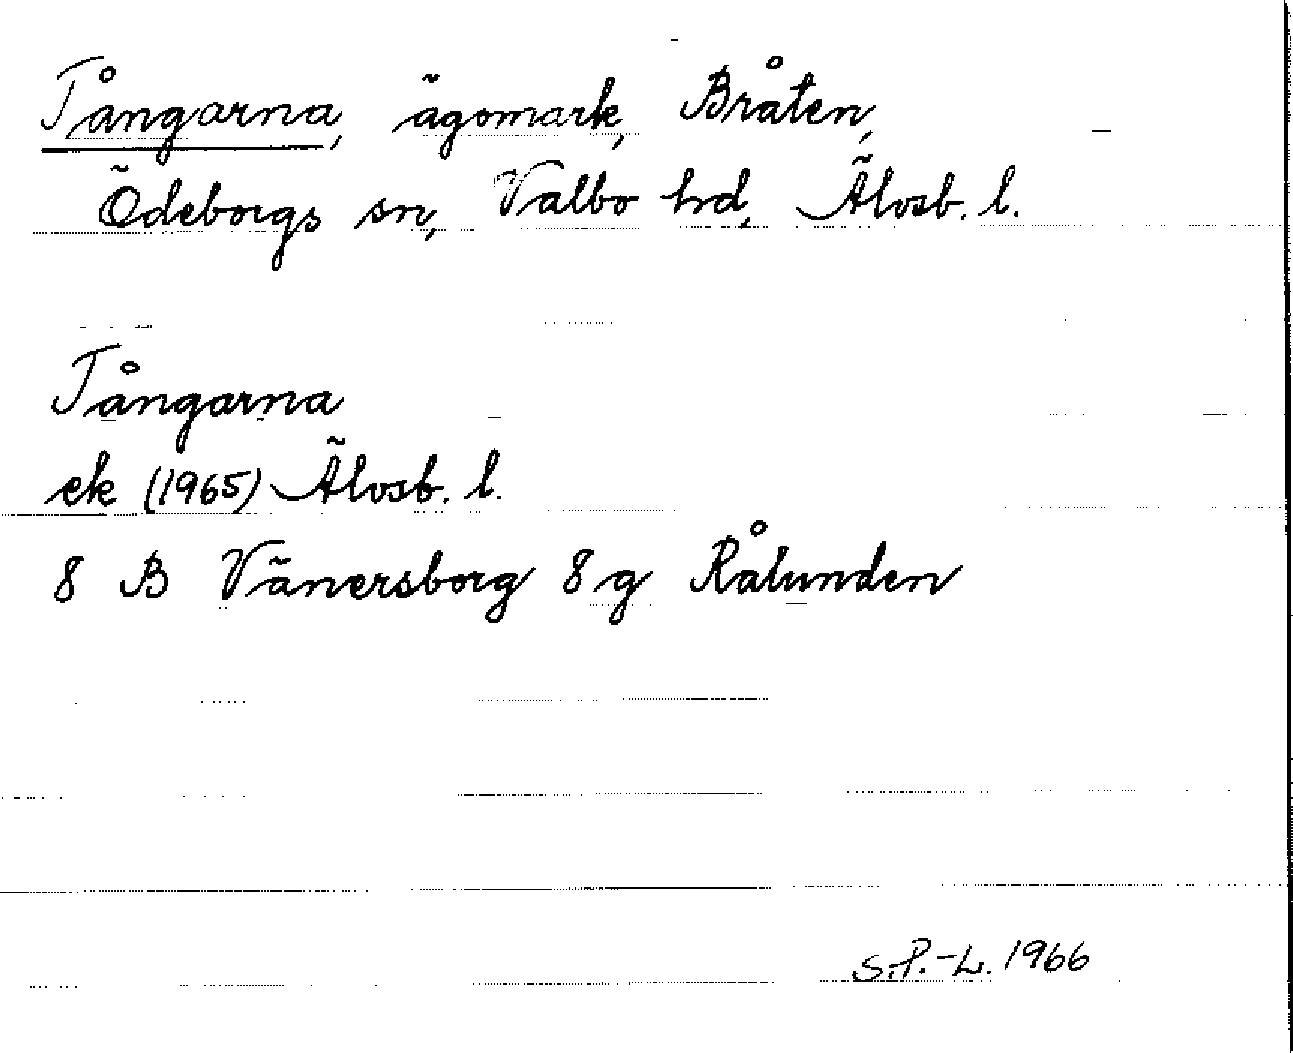 Tångarna, ägomark, Bråten,
Ödeborgs sn, Valbo hrd, Älvsb. l.
Tångarna
ek (1965) Älvsb. l.
8 B Vänersborg 8 g Rålunden
S.P.-L. 1966